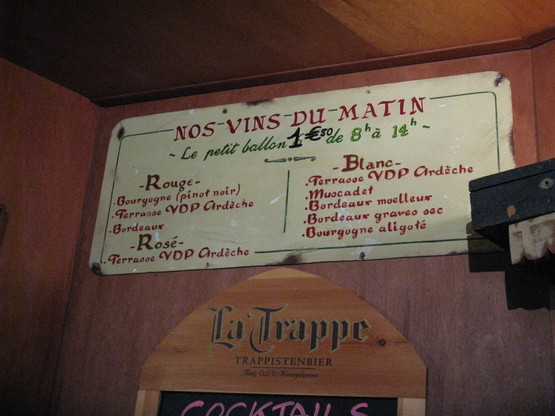 NOS-VINS-DU-MATIN
~ Le petit ballon 1€50 de 8h à 14h ~
-Rouge-
.Bourgogne (pinot noir)
.Terrasse VDP Ardèche
.Bordeaux
-Rosé-
.Terrasse VDP Ardèche
-Blanc-
.Terrasse VDP Ardèche
.Muscadet
.Bordeaux moelleux
.Bordeaux graves sec
.Bourgogne aligoté
La Trappe
TRAPPISTENBIER
COCKTAILS